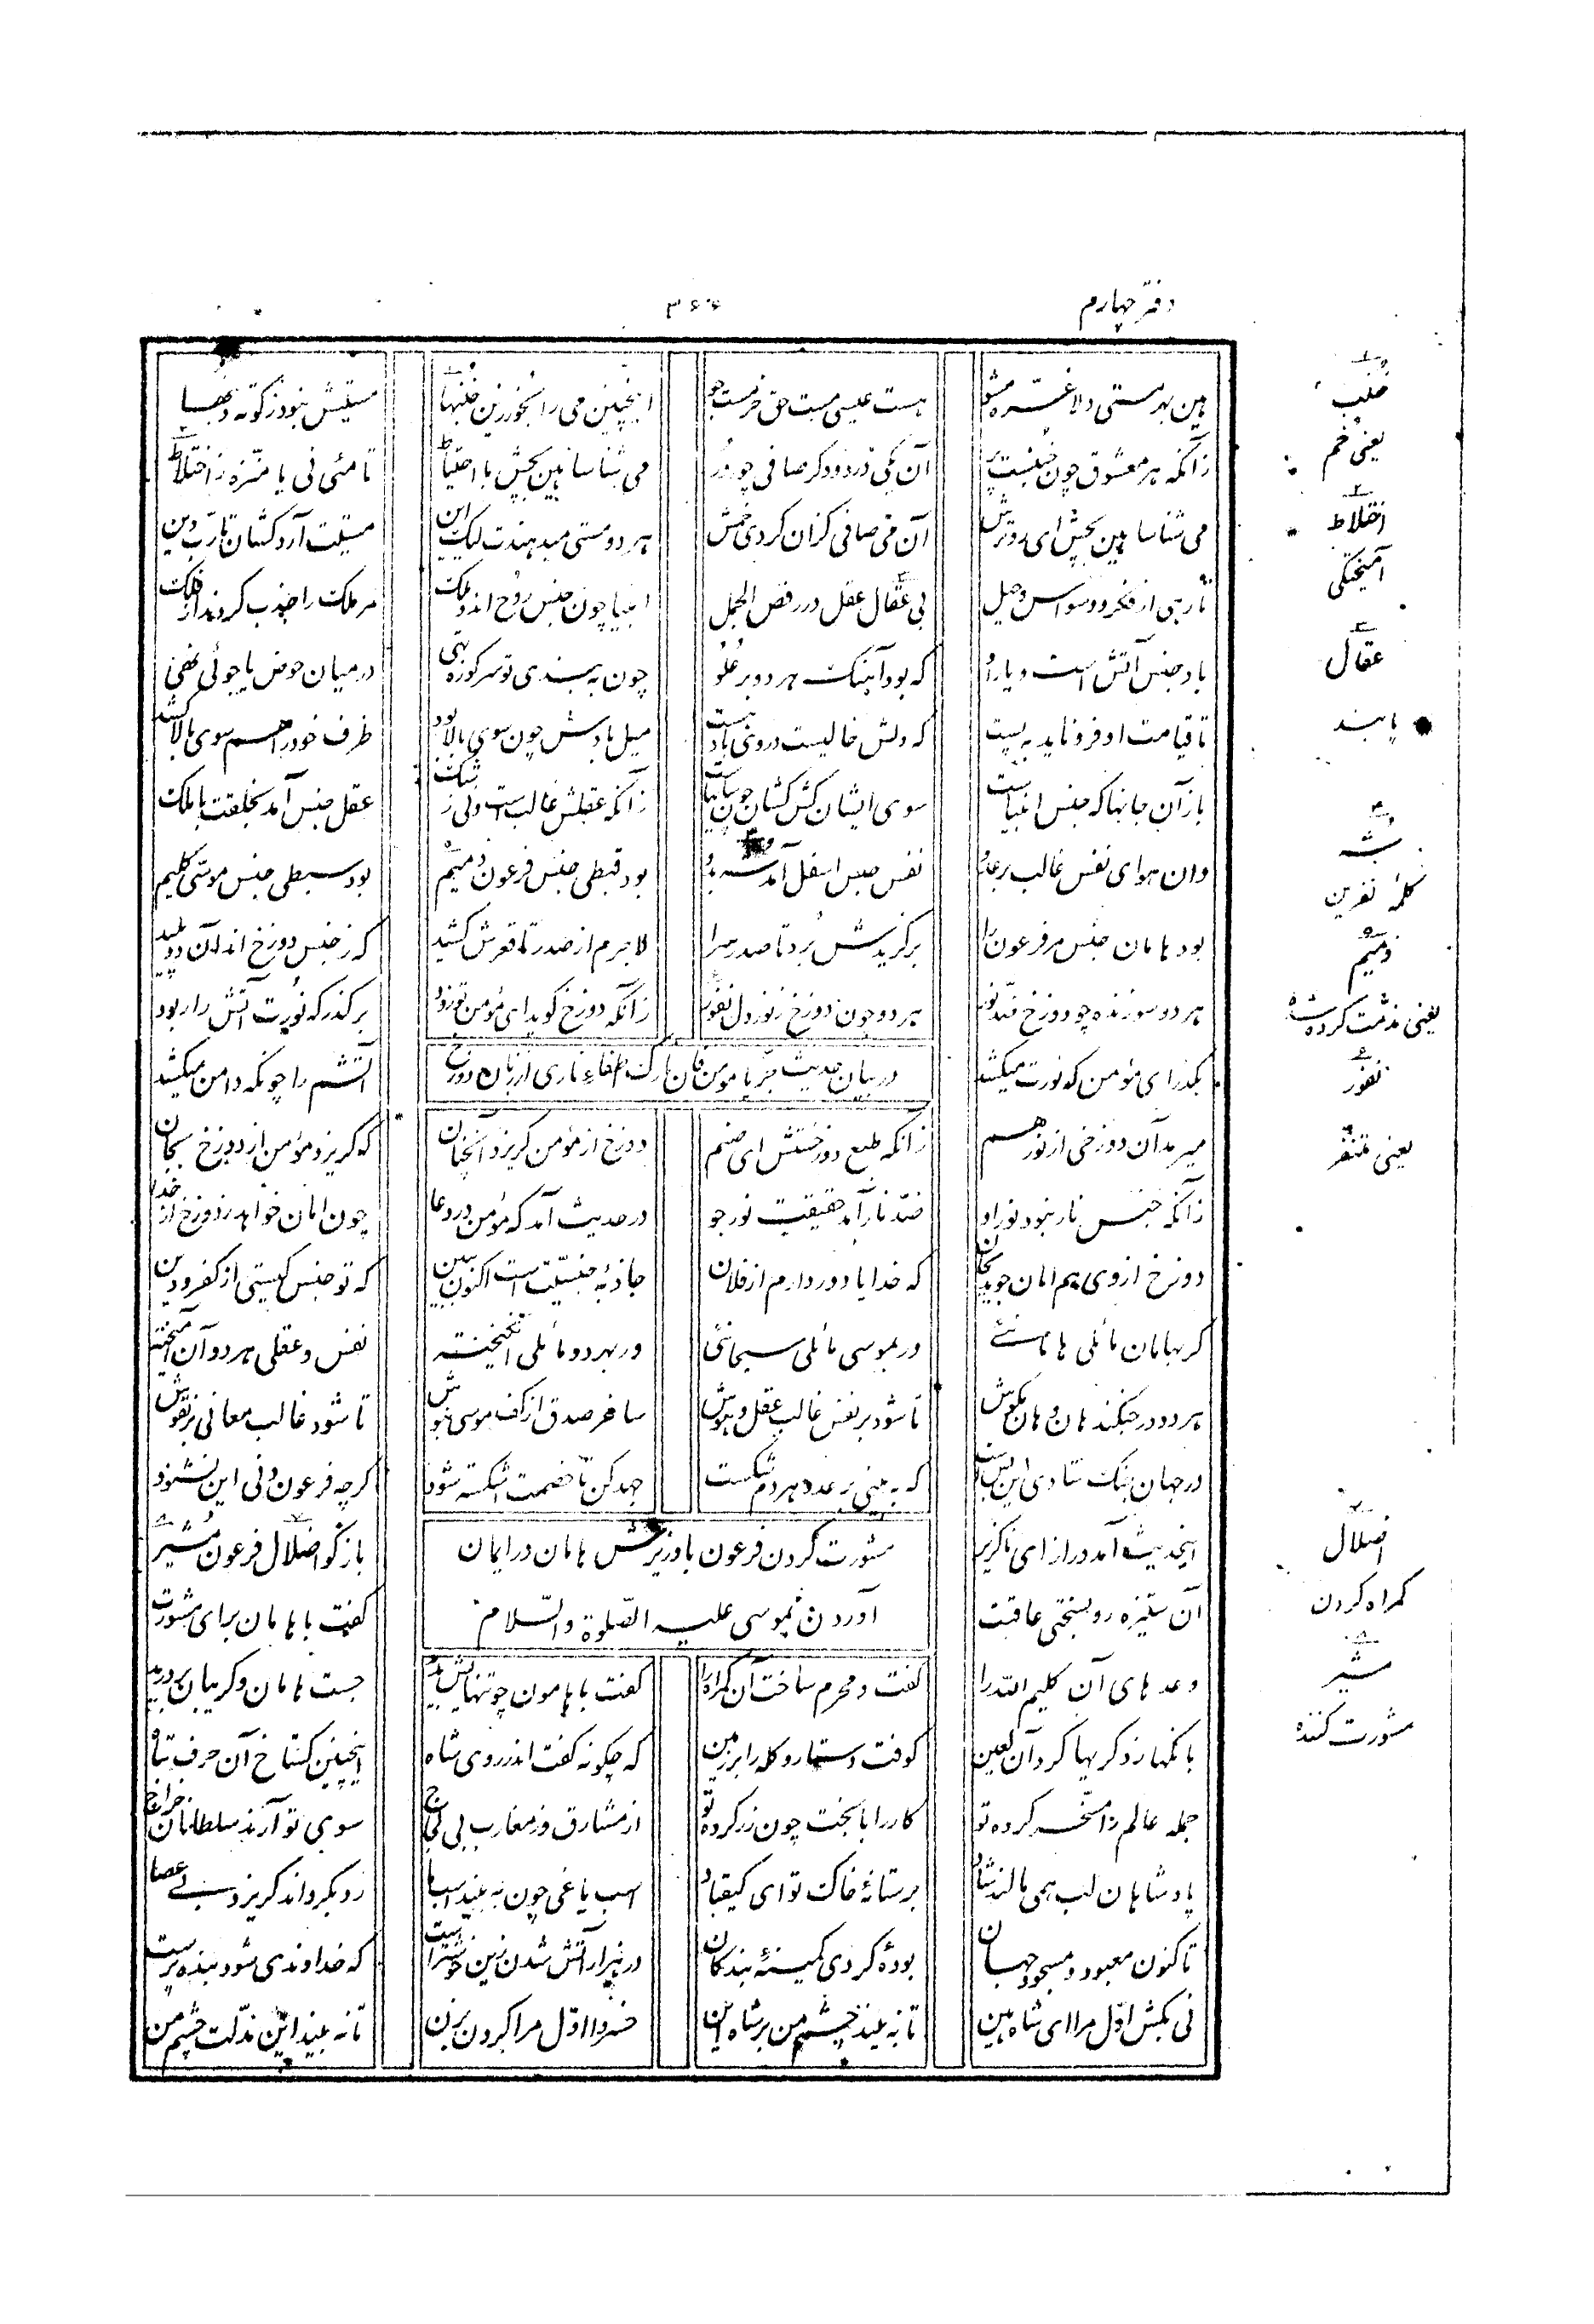 دفتر چهارم
۳۶۶
هین بهر مستی دلا غره مشو هست عیسی مست حق خر مست جو اینچنین می را بخور زین خنبها مستیش نبود ز کوته دنبها
زآنکه هر معشوق چون خنبست پر آن یکی درد و دگر صافی چو در می شناسا هین بچش با احتیاط تا مئی نی یا منزه ز اختلاط
می شناسا هین بچش ای رو ترش آن می صافی کزان کردی خمش هر دو مستی میدهندت لیک این مستیت آرد کشان تا رب دین
تا رهی از فکر و وسواس و حیل بی عقال عقل در رقص الجمل انبیا چون جنس روح اند و ملک مر ملک را جذب کردند از فلک
باد جنس آتش است و یار او که بود آهنگ هر دو بر علو چون ببندی تو سر کوزه تهی در میان حوض یا جوئی نهی
تا قیامت او فرو ناید به پست که دلش خالیست در وی باد هست میل بادش چون سوی بالا بود ظرف خود را هم سوی بالا کشد
باز آن جانها که جنس انبیاست سوی ایشان کش کشان چون سایه‌است زآنکه عقلش غالب است و بی ز شک عقل جنس آمد بخلقت با ملک
وان هوای نفس غالب بر عدو نفس جنس اسفل آمد شه بدو بود قبطی جنس فرعون ذمیم بود سبطی جنس موسی کلیم
بود هامان جنس مر فرعون را برگزیدش برد تا صدر سرا لاجرم از صدر تا قعرش کشید که ز جنس دوزخ اند آن دو پلید
هر دو سوزنده چو دوزخ ضد نور هر دو چون دوزخ ز نور دل نفور زآنکه دوزخ گوید ای مؤمن تو زود برگذر که نورت آتش را ربود
در بیان حدیث جز یا مومن فان نورک اطفاء ناری از زبان دوزخ
بگذر ای مؤمن که نورت میکشد آتشم را چونکه دامن میکشد
میرمد آن دوزخی از نور هم زآنکه طبع دوزخستش ای صنم دوزخ از مؤمن گریزد آنچنان که گریزد مؤمن از دوزخ بجان
زآنکه جنس نار نبود نور او ضد نار آمد حقیقت نور جو در حدیث آمد که مؤمن در دعا چون امان خواهد ز دوزخ از خدا
دوزخ از وی هم امان جوید بجان که خدایا دور دارم از فلان جاذبهٔ جنسیت است اکنون ببین که تو جنس کیستی از کفر و دین
گر بهامان مائلی هامانئے ور بموسی مائلی سبحانئی ور بهر دو مائلی انگیخته نفس و عقلی هر دو آن آمیخته
هر دو در جنگند هان و هان بکوش تا شود بر نفس غالب عقل و هوش ساغر صدق از کف موسی بنوش تا شود غالب معانی بر نقوش
در جهان جنگ شادی این بس است که به بینی بر عدد هر دم شکست جهد کن تا خصمت اشکسته شود گرچه فرعون دنی این نشنود
مشورت کردن فرعون با وزیرش هامان در ایمان
آوردن بموسی علیه الصلوة والسلام
اینحدیث آمد دراز ای ناگزیر باز گو اضلال فرعون مشیر
آن ستیزه رو بسختی عاقبت گفت با هامان برای مشورت
وعدهای آن کلیم الله را گفت و محرم ساخت آن گمراه را گفت با هامون چو تنهایش بدید جست هامان و گریبان بردرید
بانگها زد گریها کرد آن لعین کوفت دستار و کله را بر زمین که چگونه گفت اندر روی شاه اینچنین گستاخ آن حرف تباه
جمله عالم را مسخر کرده تو کار را با بخت چون زر کرده تو از مشارق وز مغارب بی لجاج سوی تو آرند سلطانان خراج
پادشاهان لب همی مالند شاد بر ستانهٔ خاک تو ای کیقباد اسب یاغی چون به بیند اسب ما رو بگرداند گریزد بے عصا
تاکنون معبود و مسجود جهان بودهٔ گردی کمینهٔ بندگان در هزار آتش شدن زین خوشتر است که خداوندی شود بنده پرست
نی بکش اول مرا ای شاه هین تا نه بیند چشم من بر شاه این خسروا اول مرا گردن بزن تا نه بیند این مذلت چشم من
۱ خنب
یعنی خم
۲ اختلاط
آمیختگی
۳ عقال
پابند
۴ شه
کلمهٔ نفرین
۵ ذمیم
یعنی مذمت کرده شده
۶ نفور
یعنی متنفر
۷ اضلال
گمراه کردن
۸ مشیر
مشورت کننده